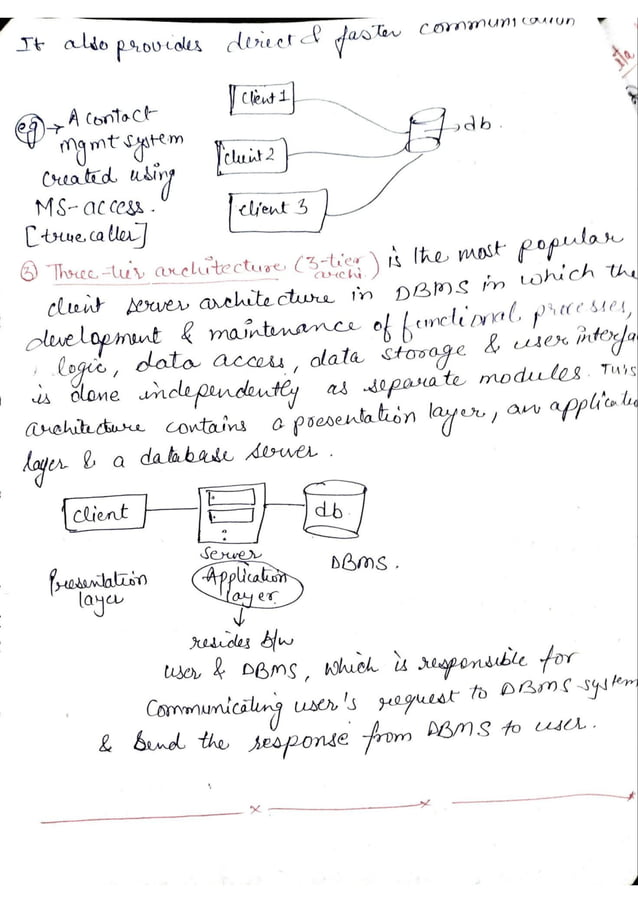 It also provides direct & faster communication
eg → A contact
mgmt system
created using
MS-access.
[truecaller]
Client 1
client 2
client 3
db.
③ Three-tier architecture (3-tier archi.) is the most popular
client server architecture in DBMS in which the
development & maintenance of functional processes,
logic, data access, data storage & user interfa
is done independently as separate modules. This
architecture contains a presentation layer, an applicatio
layer & a database server.
client
server
db
DBMS.
Presentation
layer
Application
layer
resides b/w
user & DBMS, which is responsible for
Communicating user's request to DBMS system
& Send the response from DBMS to user.